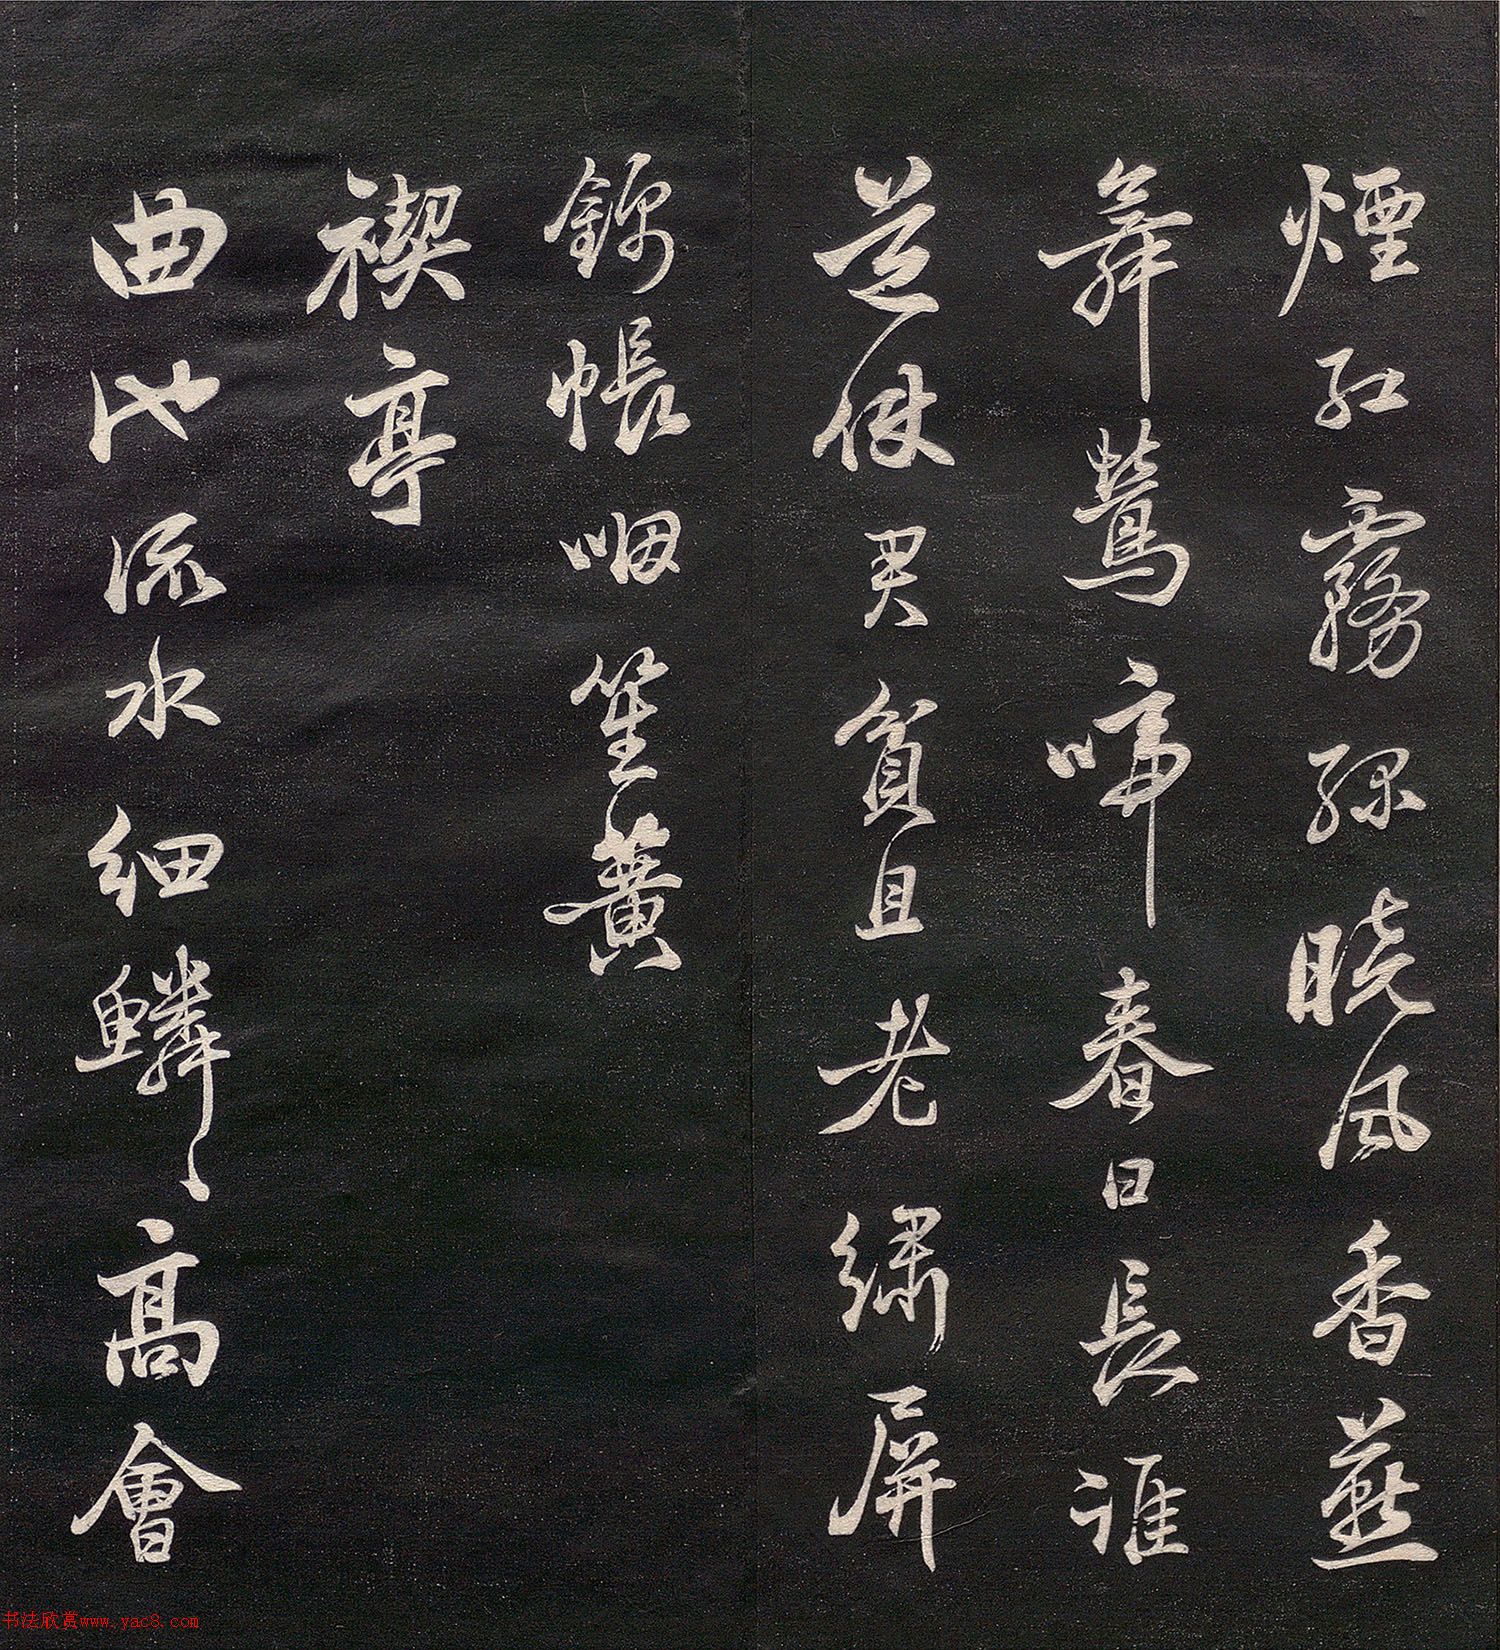 煙紅霧綠曉風香燕
舞鶯啼春日長誰
道侯君貧且老繡屏
錦帳咽笙簧
禊亭
曲池流水細鱗鱗高會
书法欣赏www.yac8.com